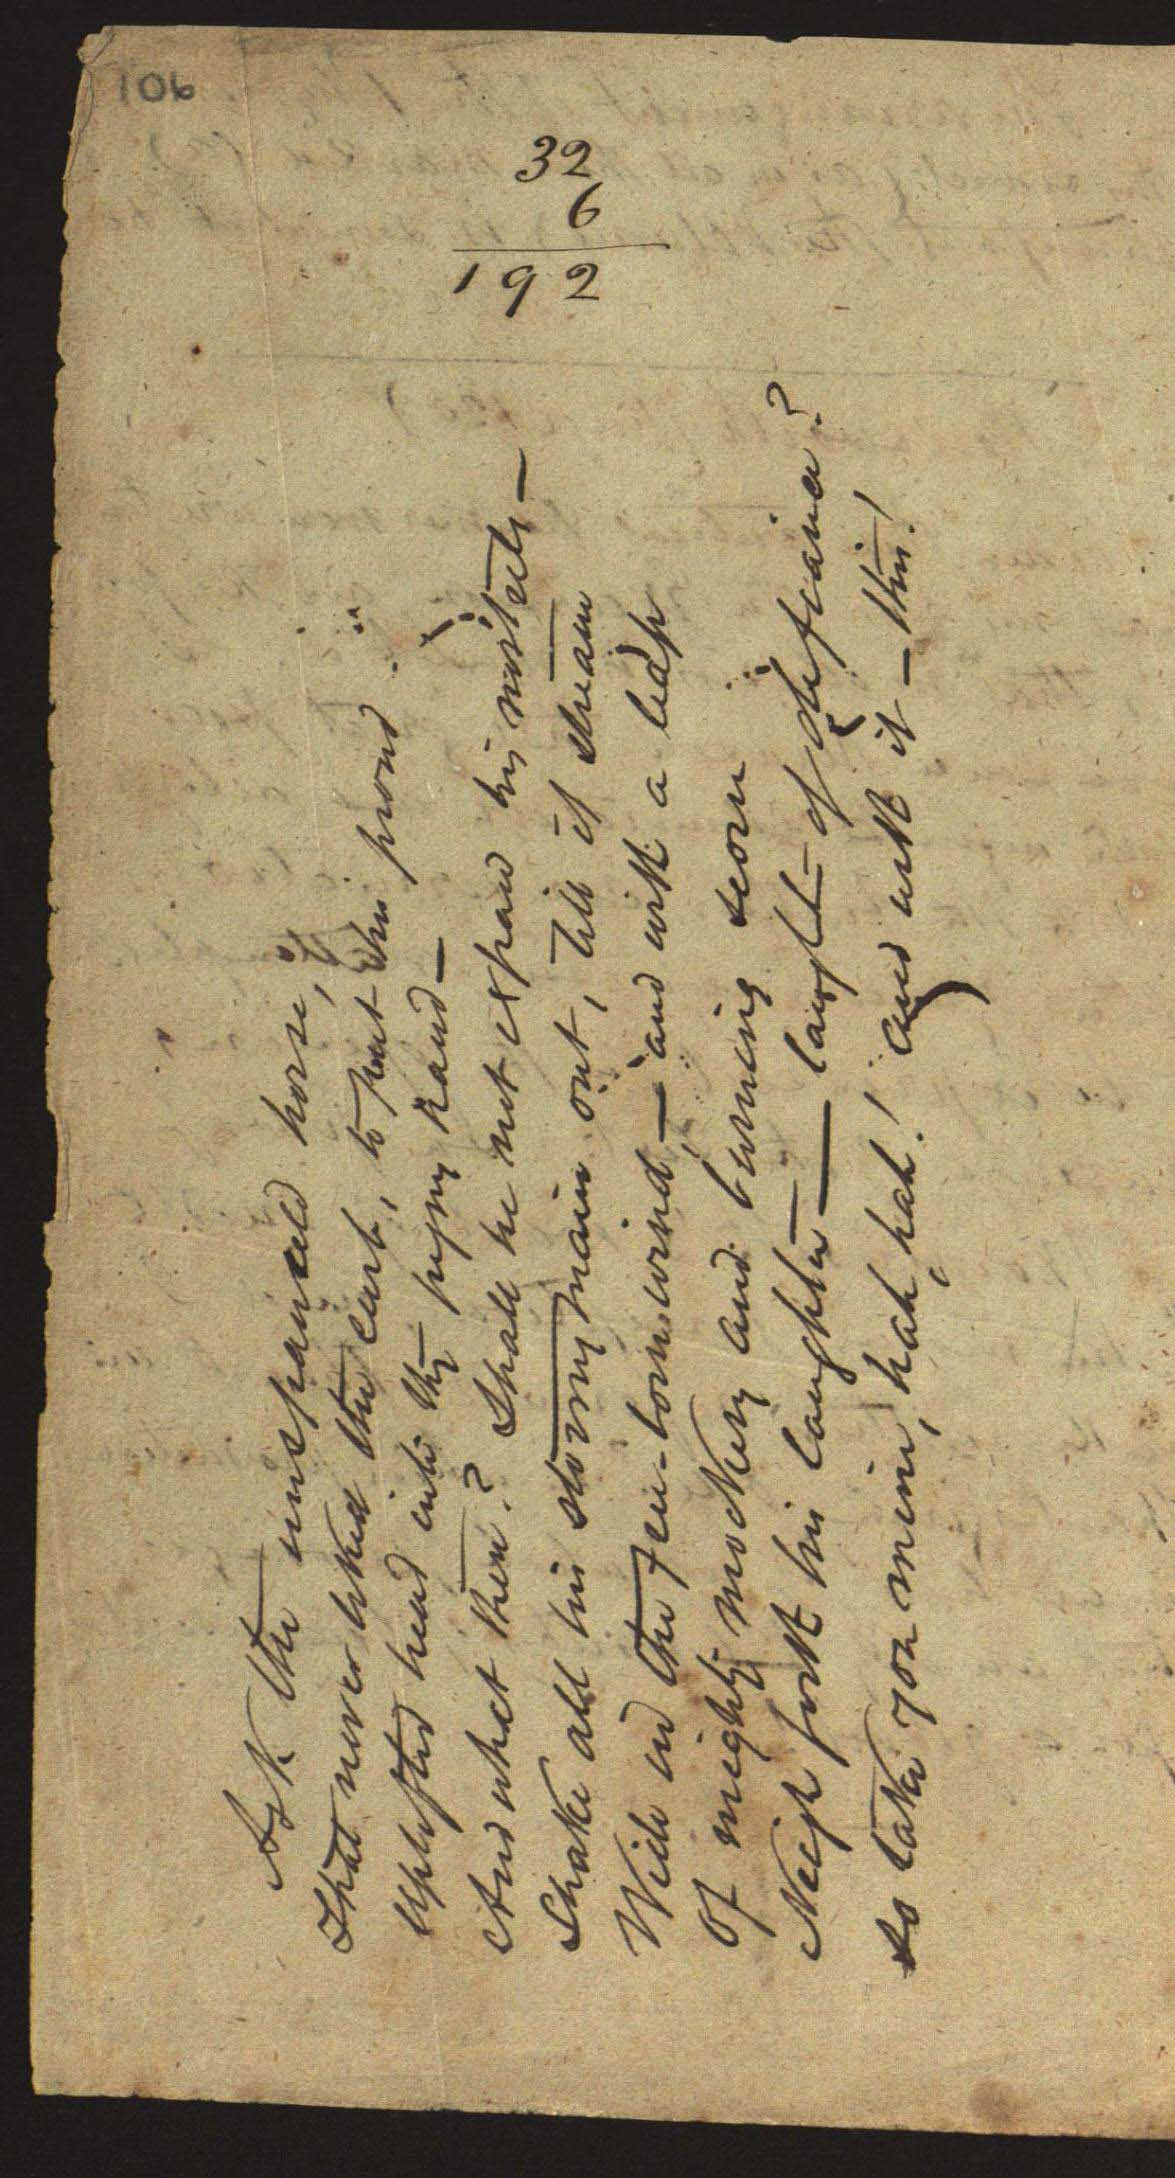 106
32
6
192
Ask the unspancelled horse,
That never liked the curb, to put his proud
Uplifted head into thy pigmy hand—
And what then? Shall he not expand his nostrils—
Shake all his stormy main out, till it stream
Wide in the fen-born wind,—and with a leap
Of mighty mockery and burning scorn
Neigh forth his laughter—laught of defiance?
So take you mine, hah, hah! and with it—this!